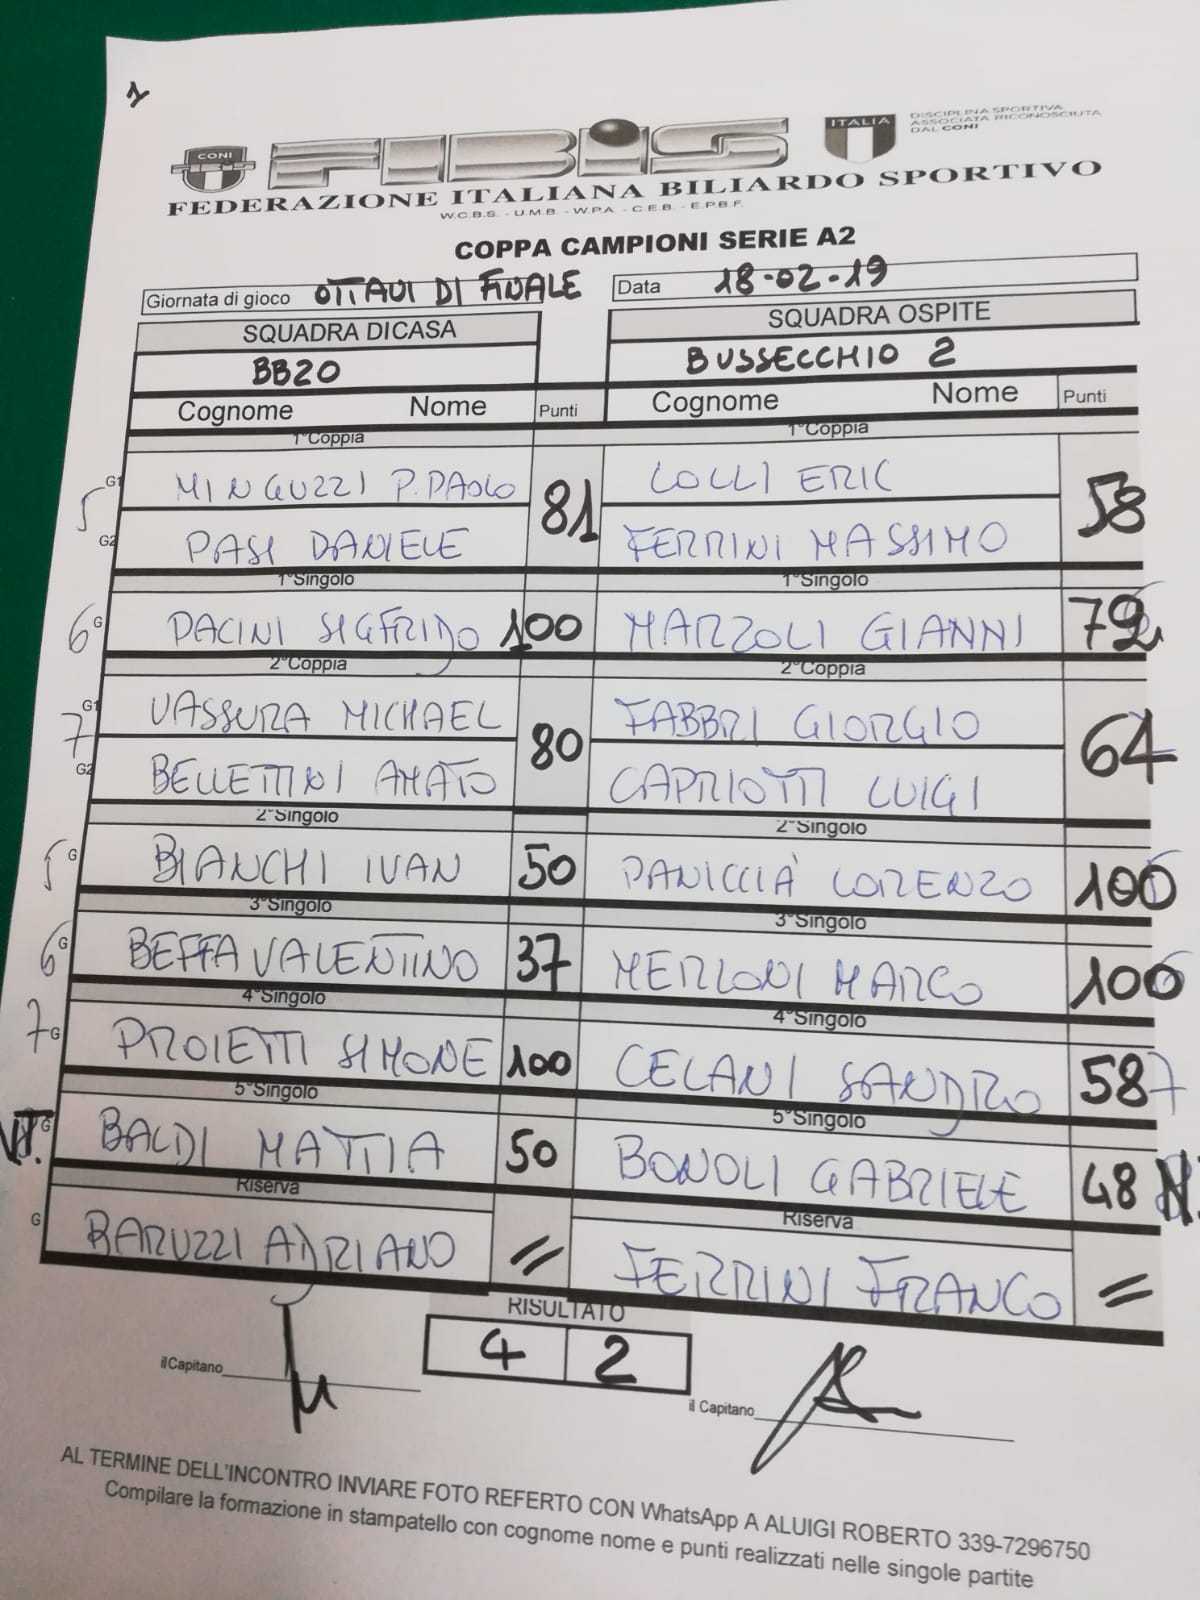 1
CONI
FIBiS
ITALIA
DISCIPLINA SPORTIVA
ASSOCIATA RICONOSCIUTA
DAL CONI
FEDERAZIONE ITALIANA BILIARDO SPORTIVO
W.C.B.S. - U.M.B. - W.P.A. - C.E.B. - E.P.B.F.
COPPA CAMPIONI SERIE A2
Giornata di gioco OTTAVI DI FINALE Data 18-02-19
SQUADRA DI CASA SQUADRA OSPITE
BB20 BUSSECCHIO 2
Cognome Nome Punti Cognome Nome Punti
1°Coppia 1°Coppia
5 G1 MINGUZZI P.PAOLO 81 LOLLI ERIC 58
G2 PASI DANIELE FERRINI MASSIMO
1°Singolo 1°Singolo
6 G PACINI SIGFRIDO 100 MARZOLI GIANNI 72
2°Coppia 2°Coppia
7 G1 VASSURA MICHAEL 80 FABBRI GIORGIO 64
G2 BELLETTINI AMATO CAPRIOTTI LUIGI
2°Singolo 2°Singolo
5 G BIANCHI IVAN 50 PANICCIÀ LORENZO 100
3°Singolo 3°Singolo
6 G BEFFA VALENTINO 37 MERLONI MARCO 100
4°Singolo 4°Singolo
7 G PROIETTI SIMONE 100 CELANI SANDRO 58 7
5°Singolo 5°Singolo
G BALDI MATTIA 50 BONOLI GABRIELE 48
Riserva Riserva
G BARUZZI ADRIANO = FERRINI FRANCO =
RISULTATO
4 2
il Capitano il Capitano
AL TERMINE DELL'INCONTRO INVIARE FOTO REFERTO CON WhatsApp A ALUIGI ROBERTO 339-7296750
Compilare la formazione in stampatello con cognome nome e punti realizzati nelle singole partite